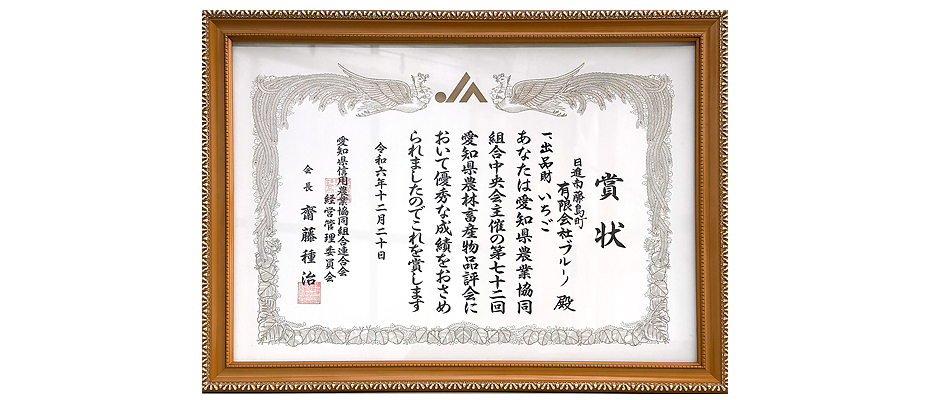 賞状
日進南藤島町
有限会社ブルーノ 殿
一、出品財 いちご
あなたは愛知県農業協同
組合中央会主催の第七十二回
愛知県農林畜産物品評会に
おいて優秀な成績をおさめ
られましたのでこれを賞します
令和六年十二月二十日
愛知県信用農業協同組合連合会
経営管理委員会
会長 齋藤種治